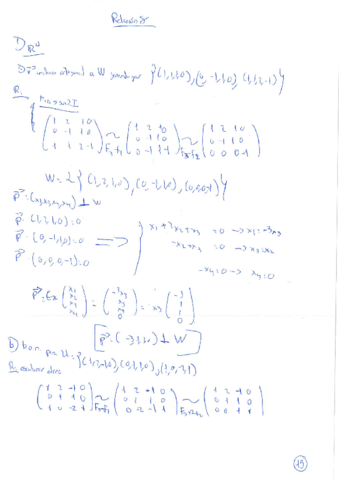 Relación 8
1) ℝ⁴
a) v⃗ unitario ortogonal a W generado por {(1,2,1,0), (0,-1,1,0), (1,1,2,-1)}
R.
(1 2 1 0
0 -1 1 0
1 1 2 -1) ~ F₃-F₁ (1 2 1 0
0 -1 1 0
0 -1 1 -1) ~ F₃-F₂ (1 2 1 0
0 -1 1 0
0 0 0 -1)
W = L{(1,2,1,0), (0,-1,1,0), (0,0,0,-1)}
p⃗ = (x₁,x₂,x₃,x₄) ⊥ W
p⃗ · (1,2,1,0) = 0
p⃗ · (0,-1,1,0) = 0 ⟹
p⃗ · (0,0,0,-1) = 0
x₁+2x₂+x₃ = 0 → x₁ = -3x₃
-x₂+x₃ = 0 → x₃ = x₂
-x₄ = 0 → x₄ = 0
(x₁
x₂
x₃
x₄) = (-3x₃
x₃
x₃
0) = x₃ (-3
1
1
0)
p⃗ = (-3,1,1,0) ⊥ W
b) b.o.n. para U = {(1,2,-1,0), (0,1,1,0), (1,0,-2,1)}
(1 2 -1 0
0 1 1 0
1 0 -2 1) ~ F₃-F₁ (1 2 -1 0
0 1 1 0
0 -2 -1 1) ~ F₃+2F₂ (1 2 -1 0
0 1 1 0
0 0 1 1)